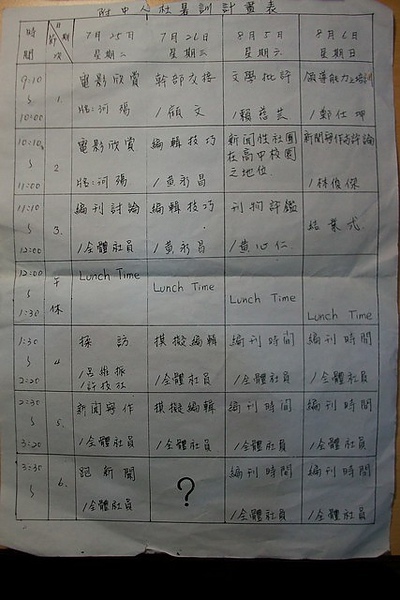 附中人社暑訓計畫表
時間 節次 日期 7月25日 星期二 7月26日 星期三 8月5日 星期六 8月6日 星期日
9:10 ~ 10:00 1. 電影欣賞 幹部交接 /顧文 文學批評 /賴慈芸 領導能力之培訓 /鄭仕坤
10:10 ~ 11:00 2 電影欣賞 編輯技巧 /黃永昌 新聞性社團在高中校園之地位 新聞寫作與評論 /林俊傑
11:10 ~ 12:00 3. 編刊討論 /全體社員 編輯技巧 /黃永昌 刊物評鑑 /黃心仁 結業式
12:00 ~ 1:30 午休 Lunch Time Lunch Time Lunch Time Lunch Time
1:30 ~ 2:20 4 採訪 /呂維振 模擬編輯 /全體社員 編刊時間 /全體社員 編刊時間 /全體社員
2:30 ~ 3:20 5. 新聞寫作 /全體社員 模擬編輯 /全體社員 編刊時間 /全體社員 編刊時間 /全體社員
3:30 ~ 6. 跑新聞 /全體社員 ? 編刊時間 /全體社員 編刊時間 /全體社員